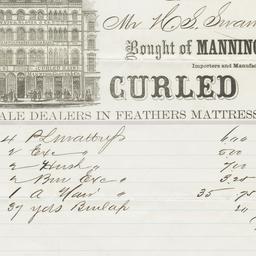 Mr H. S. Swan
Bought of MANNING
Importers and Manufac
CURLED
ALE DEALERS IN FEATHERS MATTRESS
4 P L Mattress 6 00
2 Exc " 5 00
2 Husk " 7 00
2 Bur Exc " 3 25
1 A Hair " 35 75
37 yds Burlap 20